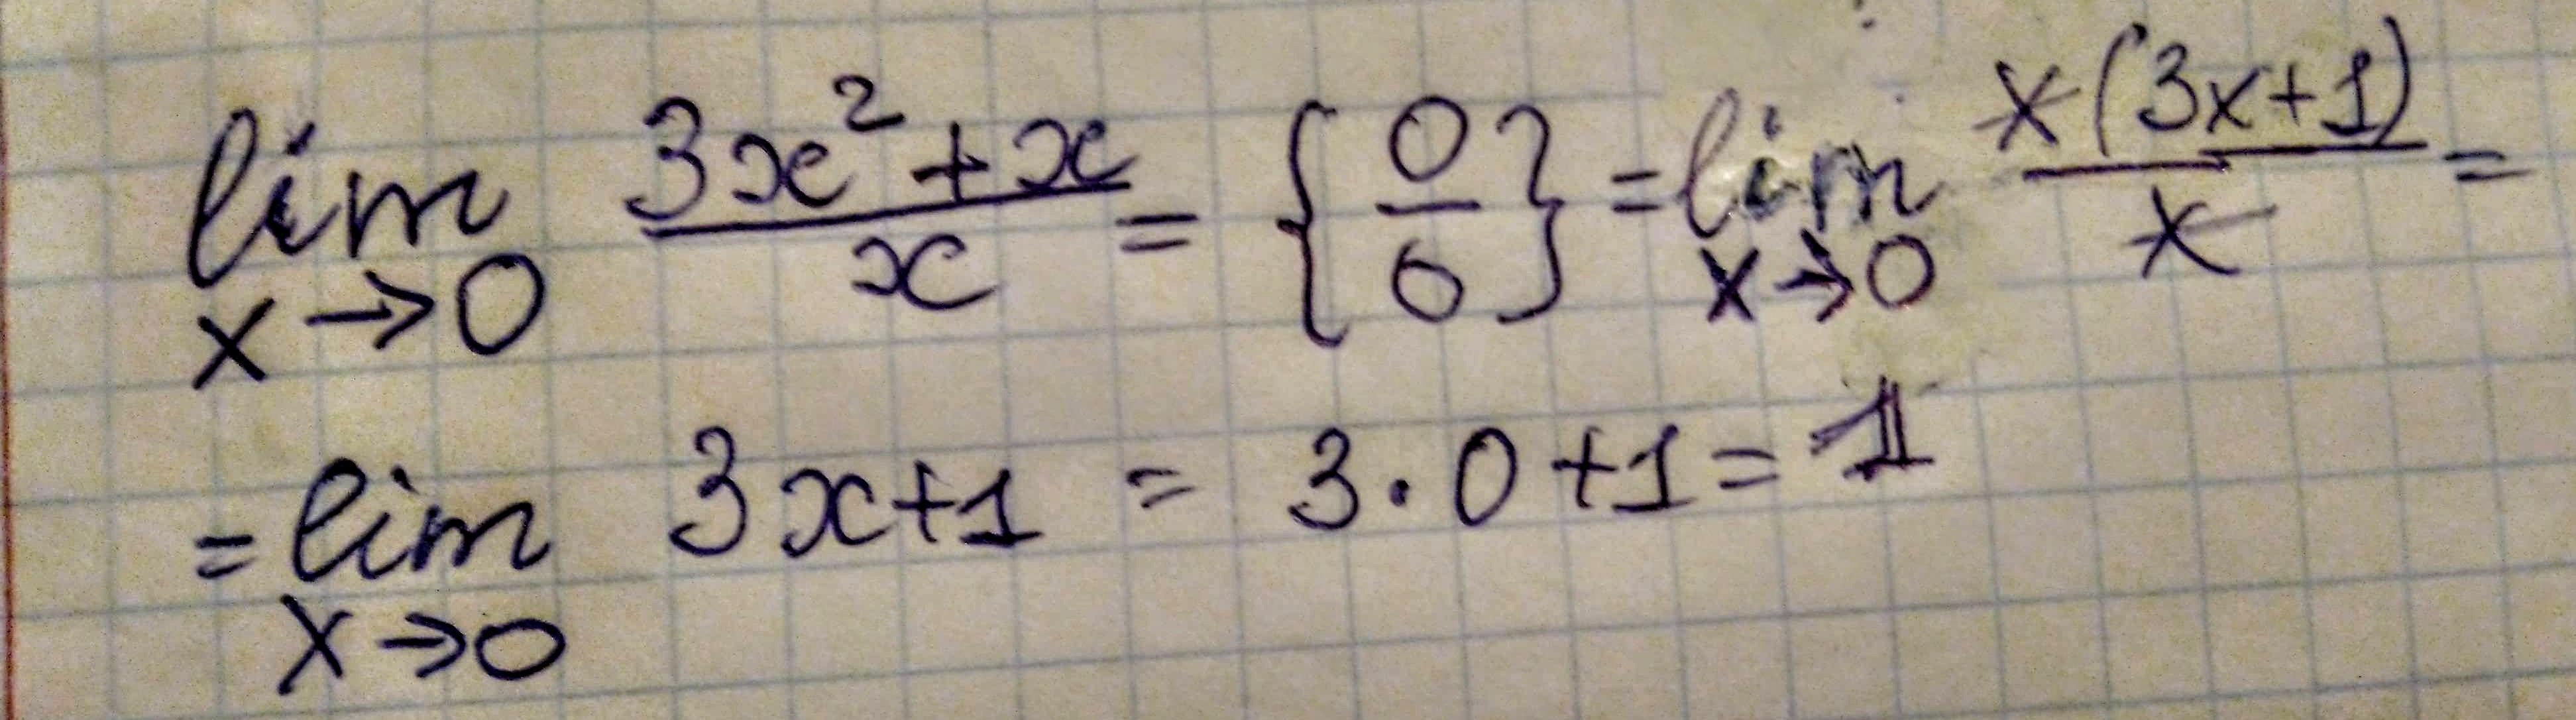 lim x→0 (3x²+x)/x = {0/0} = lim x→0 x(3x+1)/x =
= lim x→0 3x+1 = 3·0+1 = 1